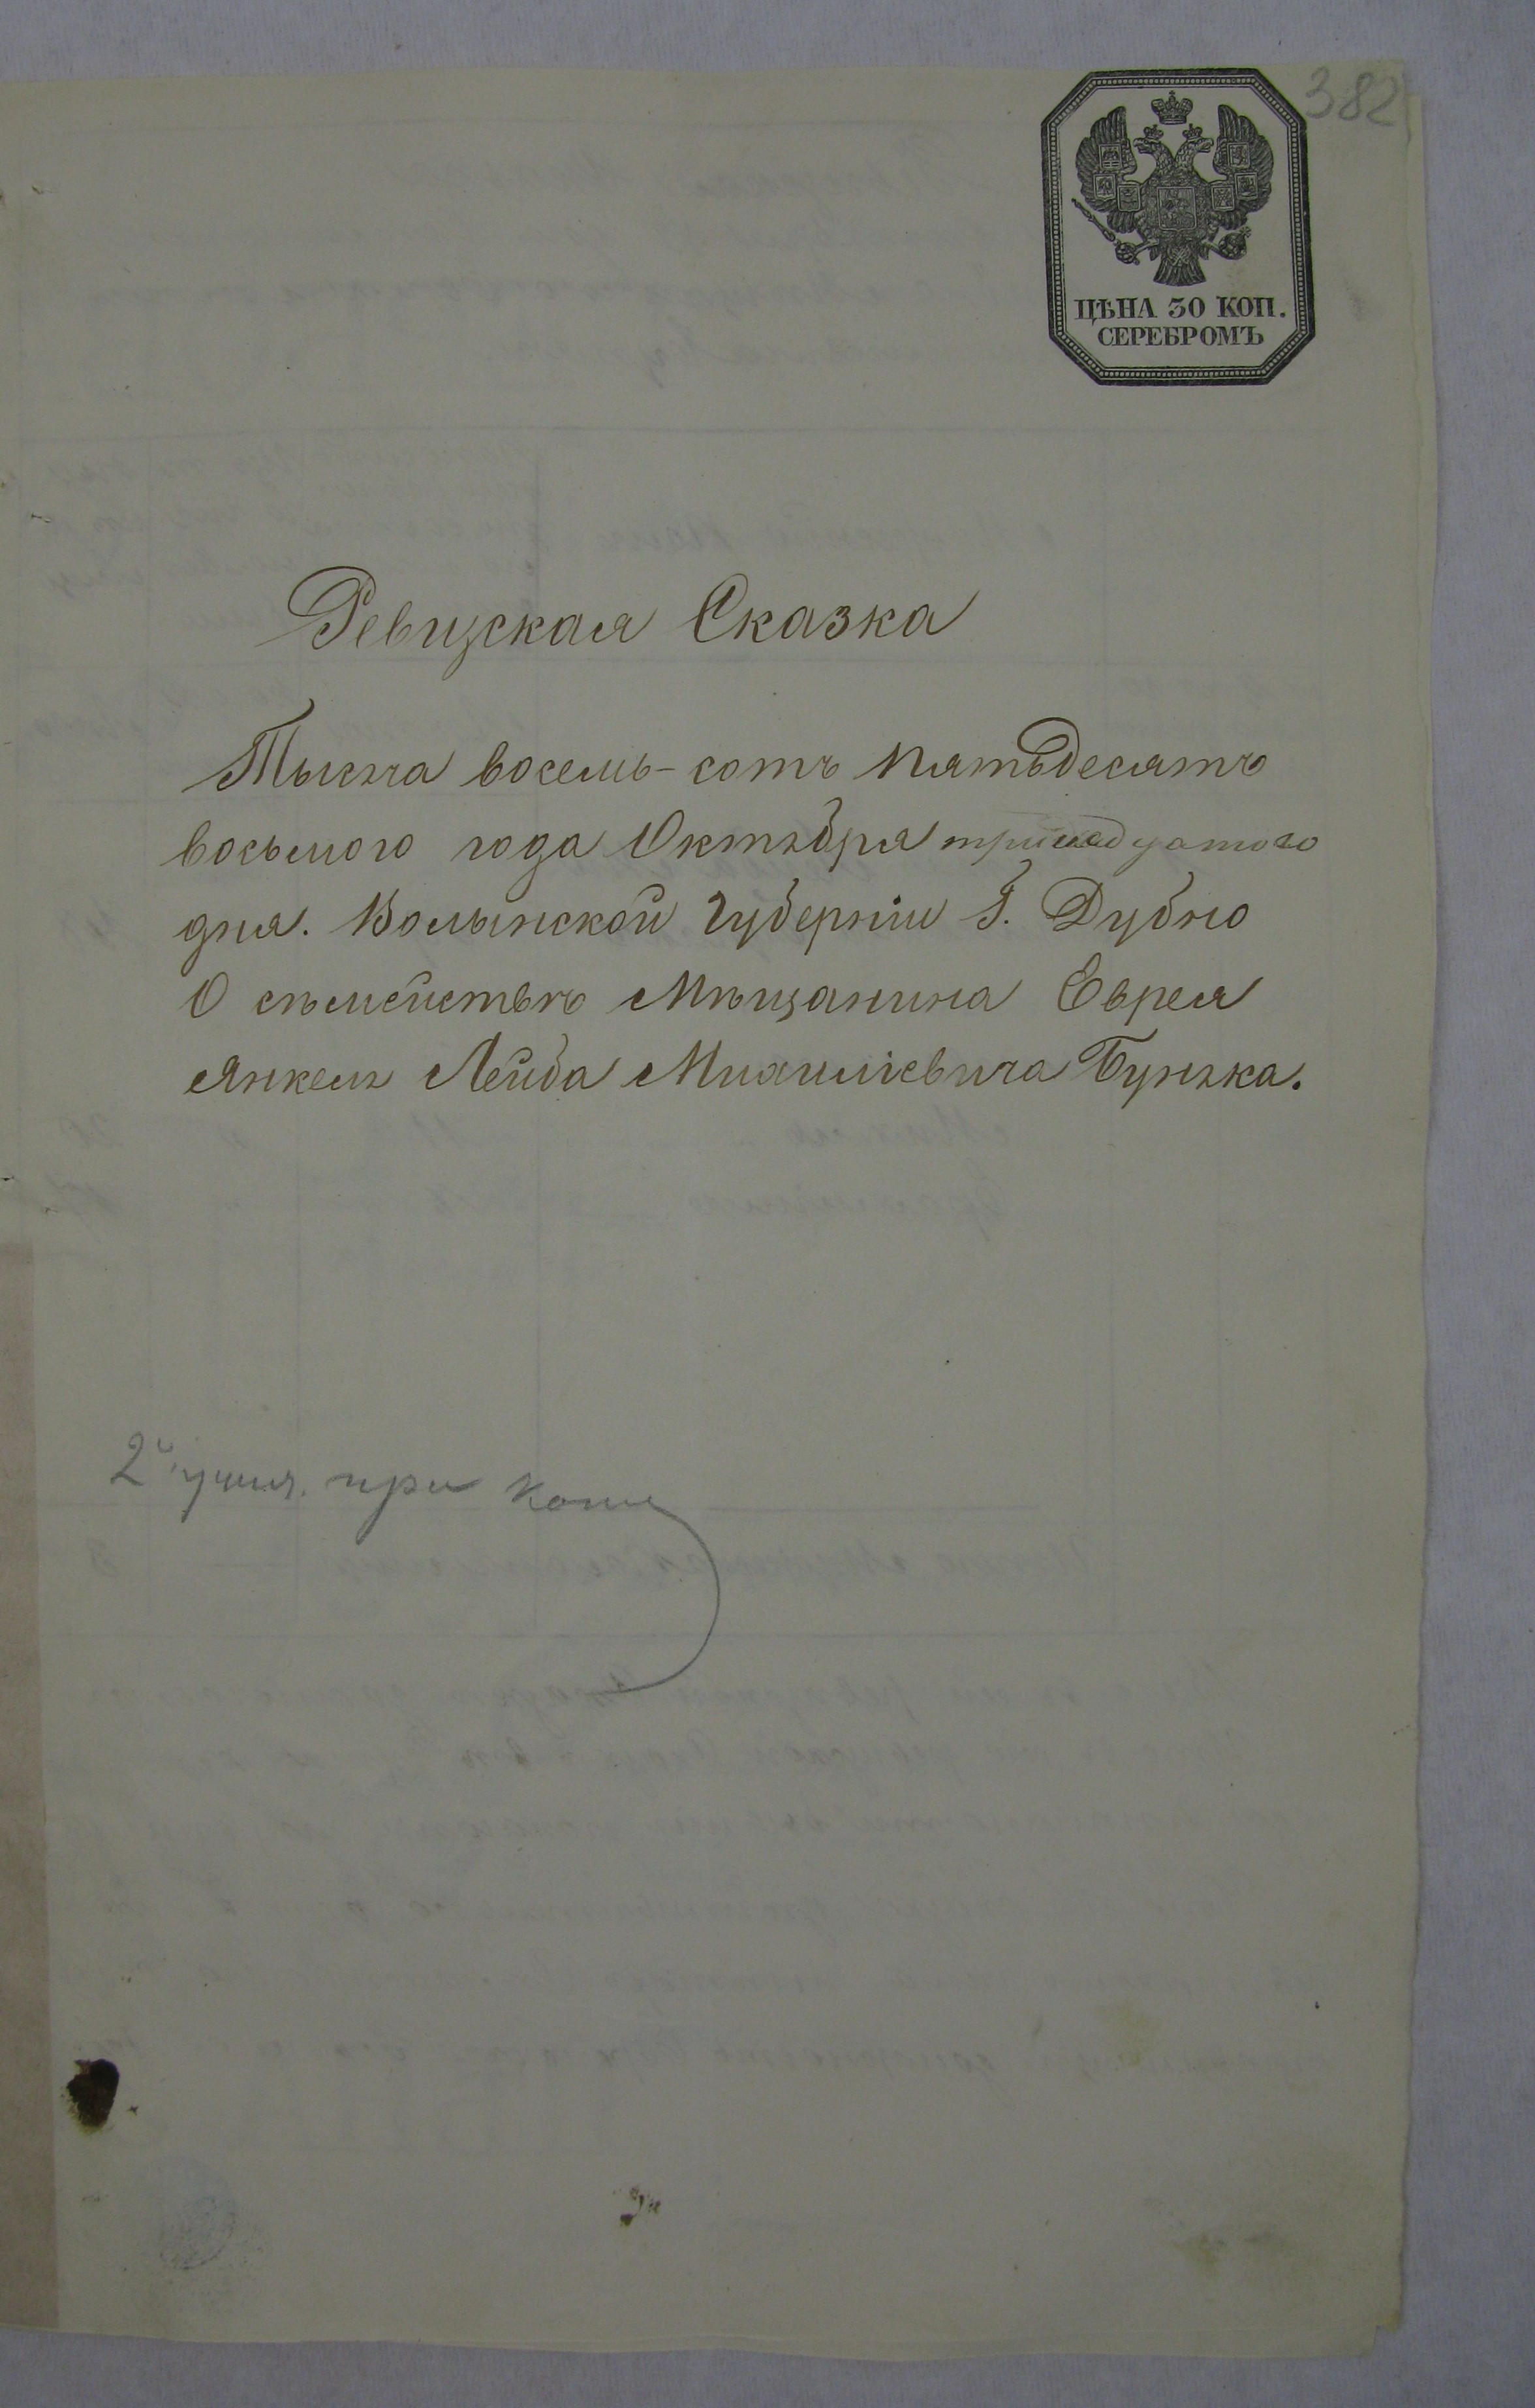 382
ЦѢНА 30 КОП.
СЕРЕБРОМЪ
Ревизская Сказка
Тысяча восемь-сотъ пятьдесятъ
восьмого года Октября тринадцатого
дня. Волынской Губерніи Г. Дубно
О сѣмействѣ Мѣщанина Еврея
Янкель Лейба Михилiевича Бунька.
2й при